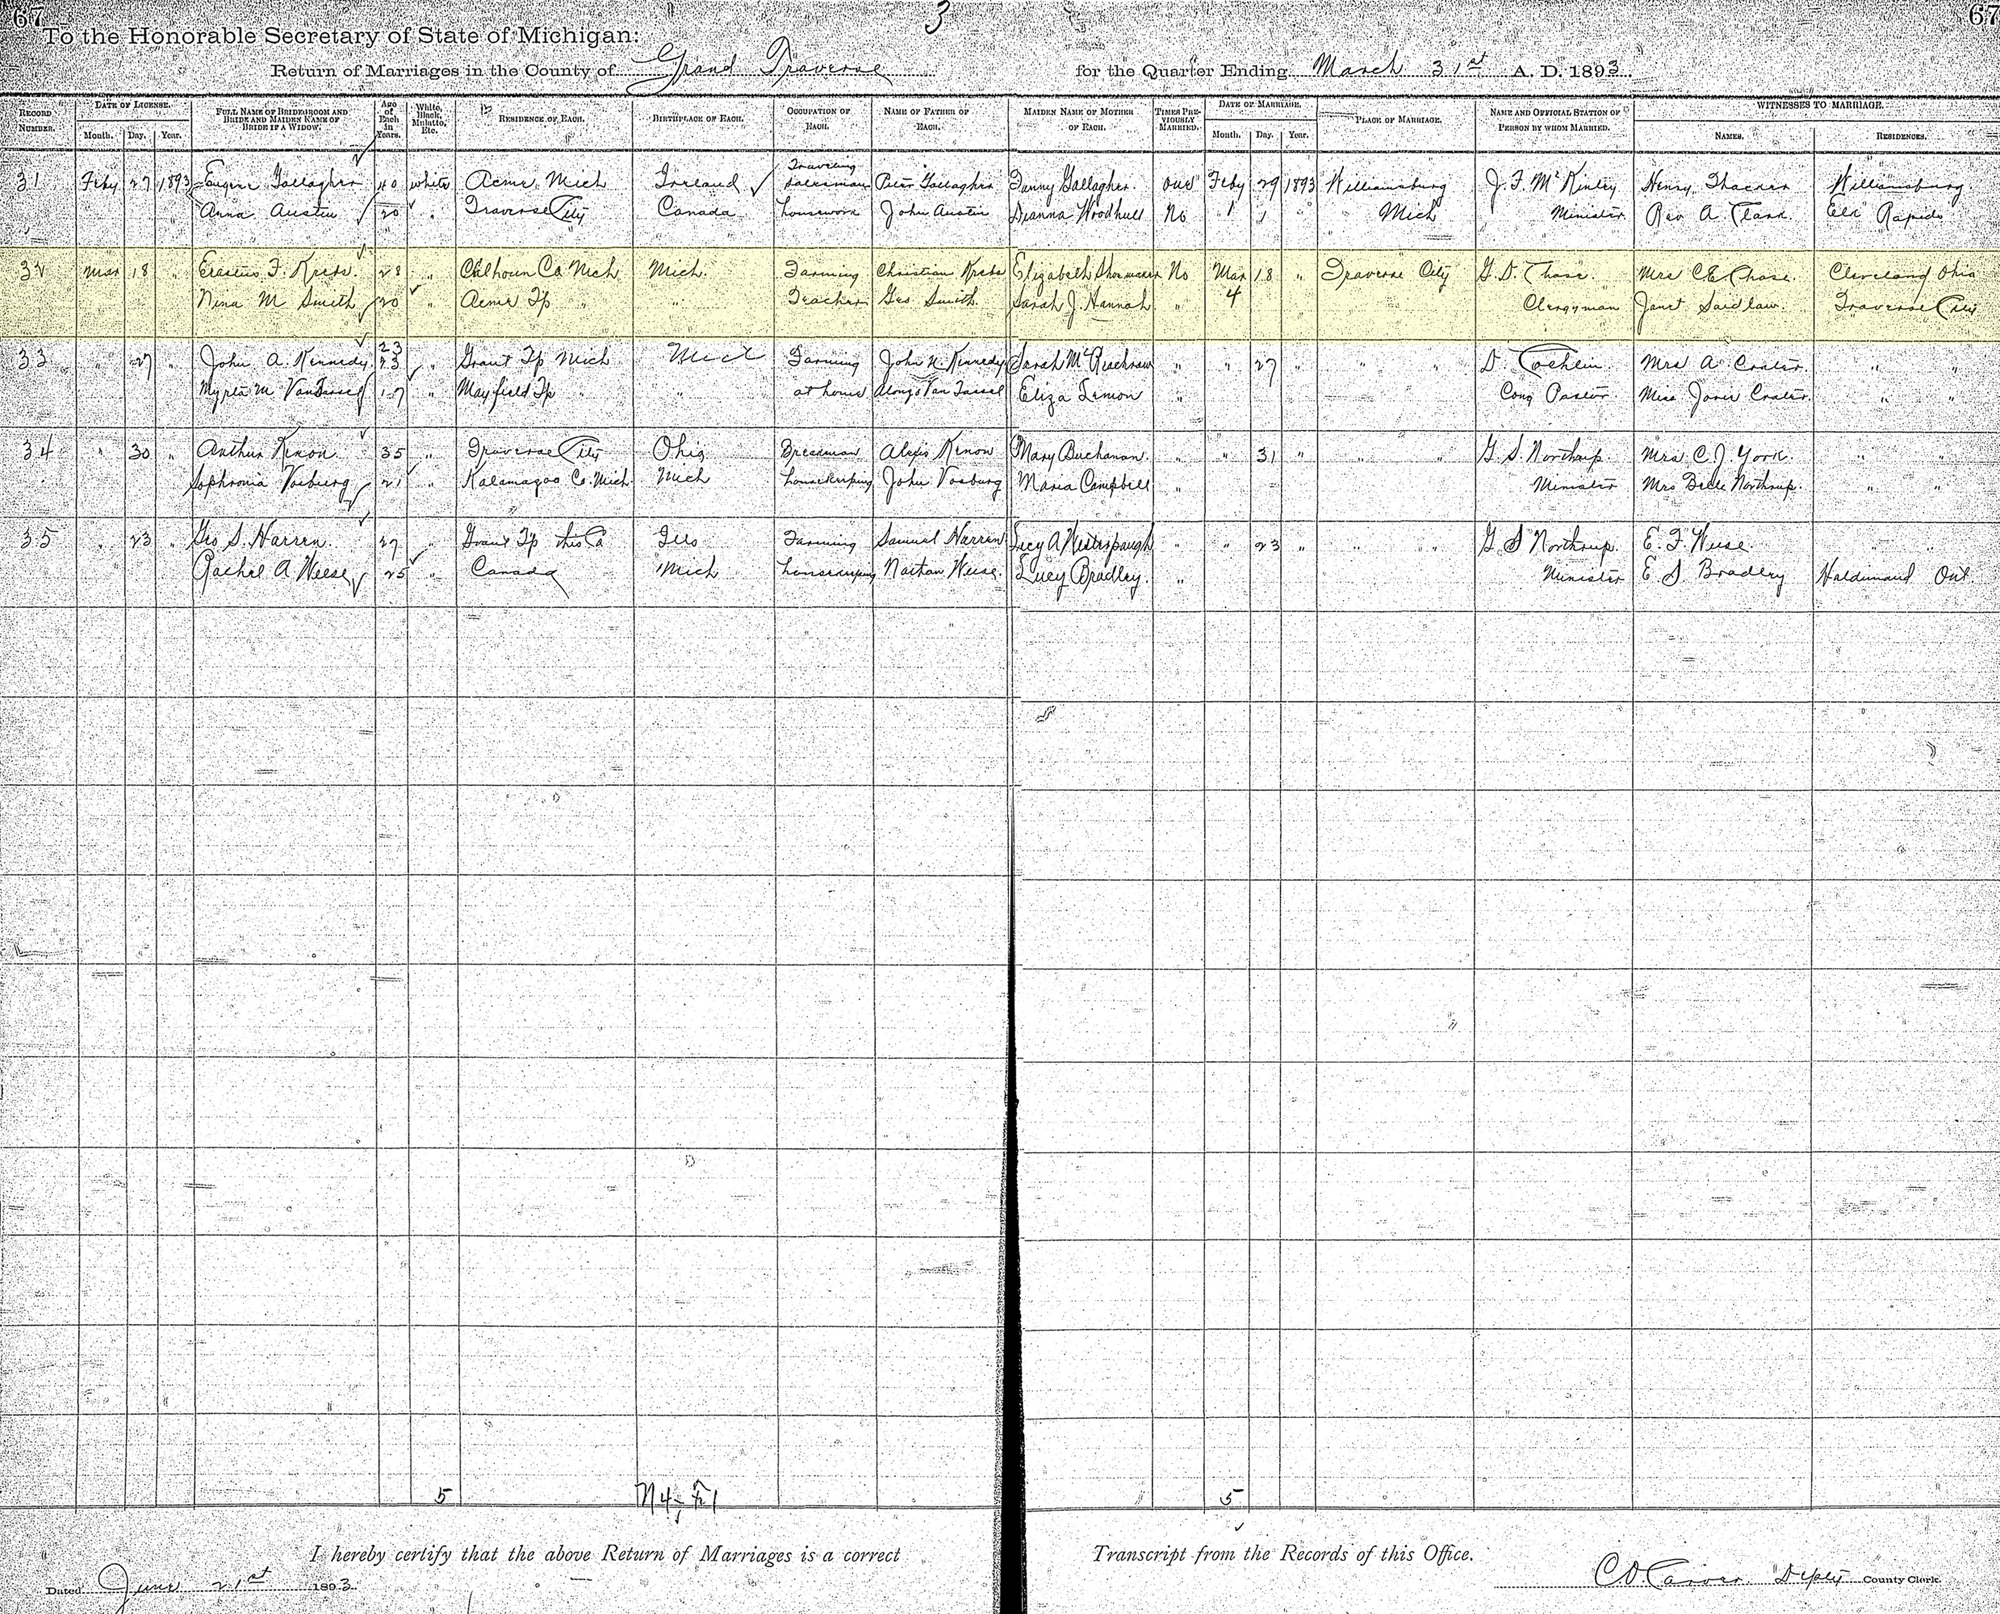 67 3 67
To the Honorable Secretary of State of Michigan:
Return of Marriages in the County of Grand Traverse for the Quarter Ending March 31st A. D. 1893.
RECORD NUMBER. DATE OF LICENSE. Month. Day. Year. FULL NAME OF BRIDEGROOM AND BRIDE AND MAIDEN NAME OF BRIDE IF A WIDOW. Age of Each in Years. White, Black, Mulatto, Etc. RESIDENCE OF EACH. BIRTHPLACE OF EACH. OCCUPATION OF EACH. NAME OF FATHER OF EACH. MAIDEN NAME OF MOTHER OF EACH. TIMES PREVIOUSLY MARRIED. DATE OF MARRIAGE. Month. Day. Year. PLACE OF MARRIAGE. NAME AND OFFICIAL STATION OF PERSON BY WHOM MARRIED. WITNESSES TO MARRIAGE. NAMES. RESIDENCES.
31 Feby 27 1893 Eugene Gallagher 40 White Acme Mich Ireland Traveling salesman Peter Gallagher Fanny Gallagher. one Feby 29 1893 Williamsburg J. F. McKinley Henry Thacker Williamsburg
Anna Austin 20 " Traverse City Canada housework John Austin Deanna Woodhull No 1 1 " Mich Minister Rev A Clark Elk Rapids
32 Mar 18 " Erastus F. Krebs. 28 " Calhoun Co. Mich Mich. Farming Christian Krebs Elizabeth Shoemaker No Mar 18 " Traverse City G. D. Chase. Mrs C. E. Chase. Cleveland Ohio
Nina M Smith 20 " Acme Tp " " Teacher Geo Smith. Sarah J. Hannah " 4 Clergyman Janet Laidlaw. Traverse City
33 " 27 " John A. Kennedy. 23 23 " Grant Tp Mich Mich Farming John N. Kennedy Sarah " " 27 " " " D. Cochlin. Mrs A Crater. " "
Myrta M VanTassel 17 " Mayfield Tp " " at home Alonzo Van Tassel Eliza Lemon " Cong Pastor. Miss Janie Crater. " "
34 " 30 " Arthur Kenon 35 " Traverse City Ohio Alexis Kenon Mary Buchanan. " " 31 " " " G. S. Northrup. Mrs C. J. York. " "
Sophronia Vosburg 21 " Kalamazoo Co. Mich. Mich housekeeping John Vosburg Maria Campbell " Minister Mrs Belle Northrup. " "
35 " 23 " Geo S. Harren. 27 Grant Tp this Co Ills Farming Samuel Harren Lucy A " " 23 " " " G. S Northrup. E. F. Weese " "
Rachel A Weese 25 " Canada Mich housekeeping Nathan Weese. Lucy Bradley. " Minister E. S. Bradley Haldimand Ont.
5 N4; F1 5
I hereby certify that the above Return of Marriages is a correct Transcript from the Records of this Office.
Dated June 21st 1893. C D Carver Depty County Clerk.